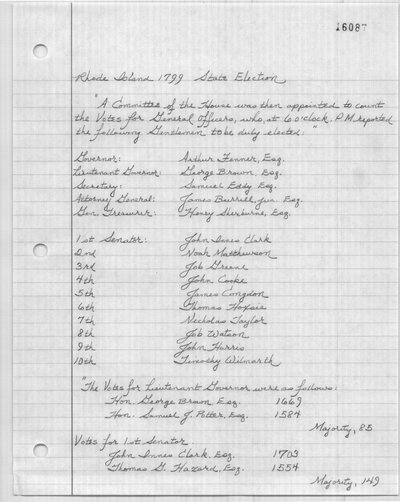 16087
Rhode Island 1799 State Election
"A Committee of the House was then appointed to count
the Votes for General Officers, who, at 6 o'clock P.M. reported
the following Gentlemen to be duly elected:"
Governor: Arthur Fenner, Esq.
Lieutenant Governor: George Brown, Esq.
Secretary: Samuel Eddy, Esq.
Attorney General: James Burrill, jun. Esq.
Gen. Treasurer: Henry Sherburne, Esq.
1st Senator: John Innes Clark
2nd Noah Matthewson
3rd Job Greene
4th John Cooke
5th James Congdon
6th Thomas Hoxsie
7th Nicholas Taylor
8th Job Watson
9th John Harris
10th Timothy Wilmarth
"The Votes for Lieutenant Governor were as follows:
Hon. George Brown, Esq. 1669
Hon. Samuel J. Potter, Esq. 1584
Majority, 85
Votes for 1st Senator
John Innes Clark, Esq. 1703
Thomas G. Hazard, Esq. 1554
Majority, 149